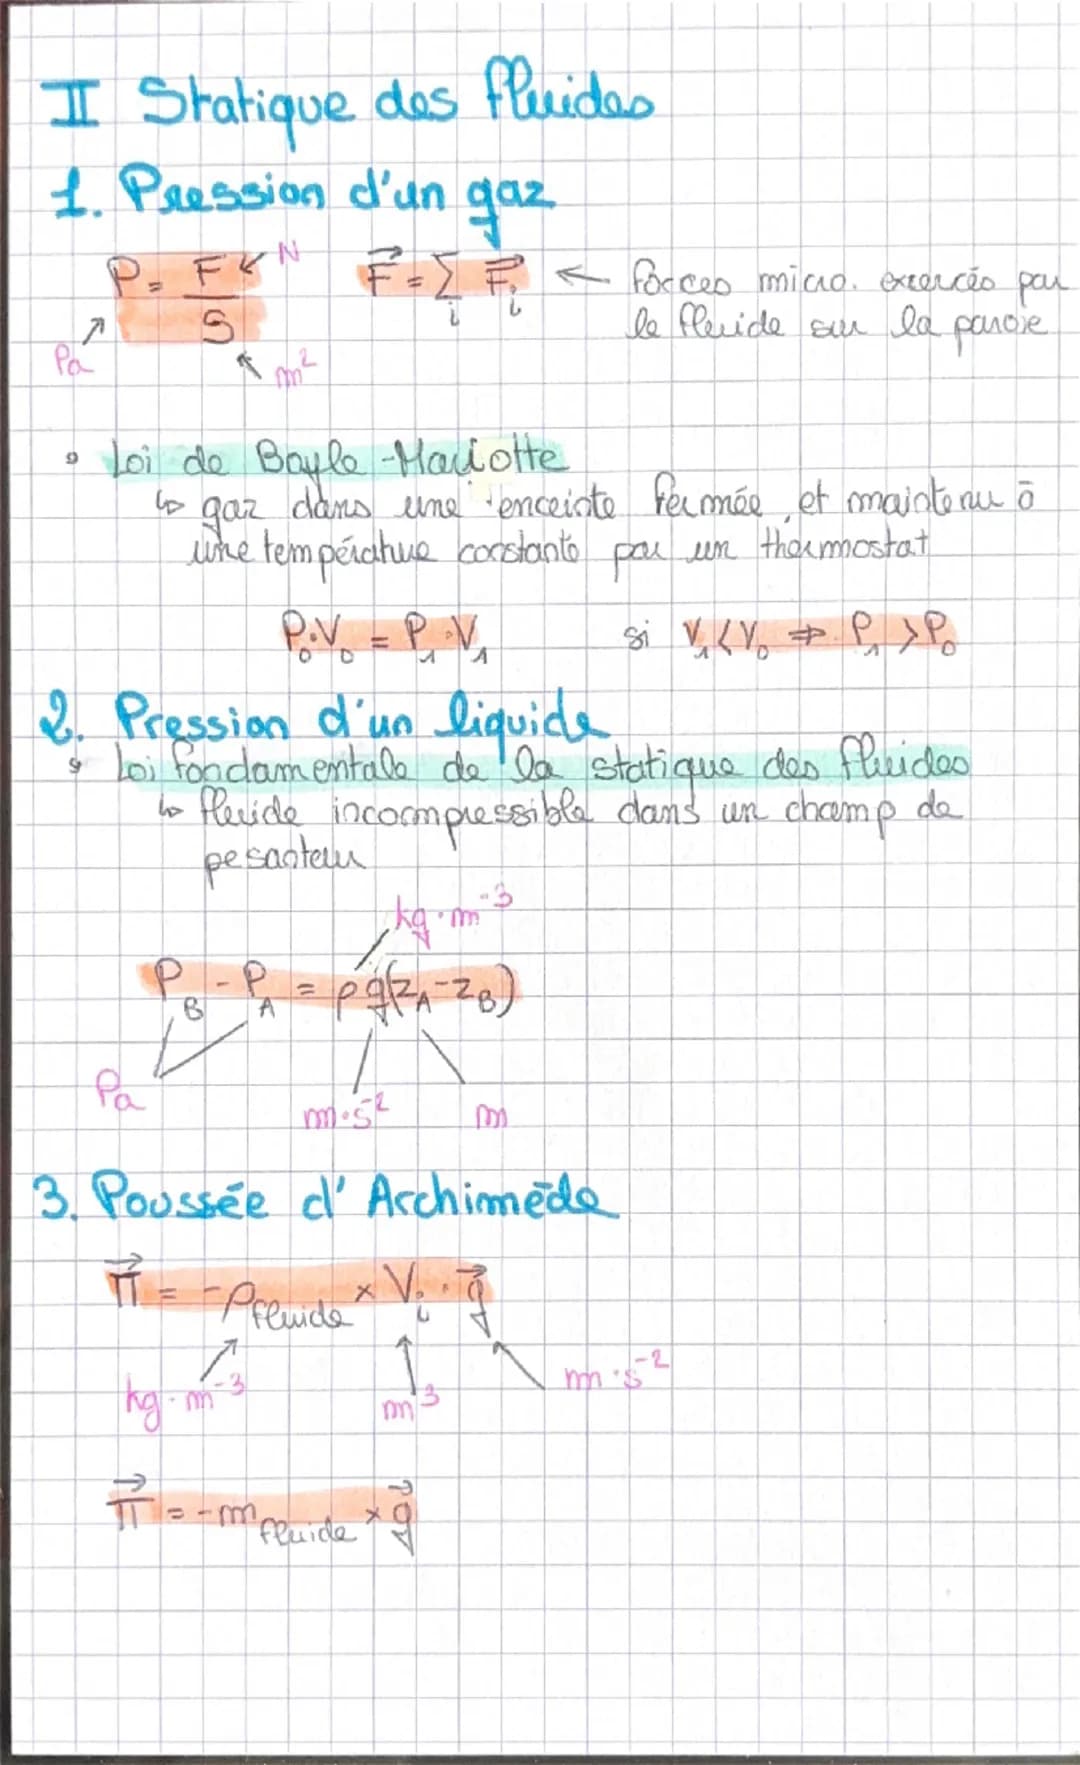 II Statique des fluides
1. Pression d'un gaz
P = F/S N Pa m²
F⃗ = ∑ᵢ F⃗ᵢ ← forces micro. exercés par
le fluide sur la paroie
• Loi de Boyle-Mariotte
↳ gaz dans une enceinte fermée et maintenu à
une température constante par un thermostat
P₀·V₀ = P₁·V₁ si V₁<V₀ ⇒ P₁>P₀
2. Pression d'un liquide
• Loi fondamentale de la statique des fluides
↳ fluide incompressible dans un champ de
pesanteur
kg·m⁻³
P_B - P_A = ρg(z_A-z_B)
Pa m·s⁻² m
3. Poussée d'Archimède
Π⃗ = -ρ_fluide × Vᵢ · g⃗
kg·m⁻³ m³ m·s⁻²
Π⃗ = -m_fluide × g⃗